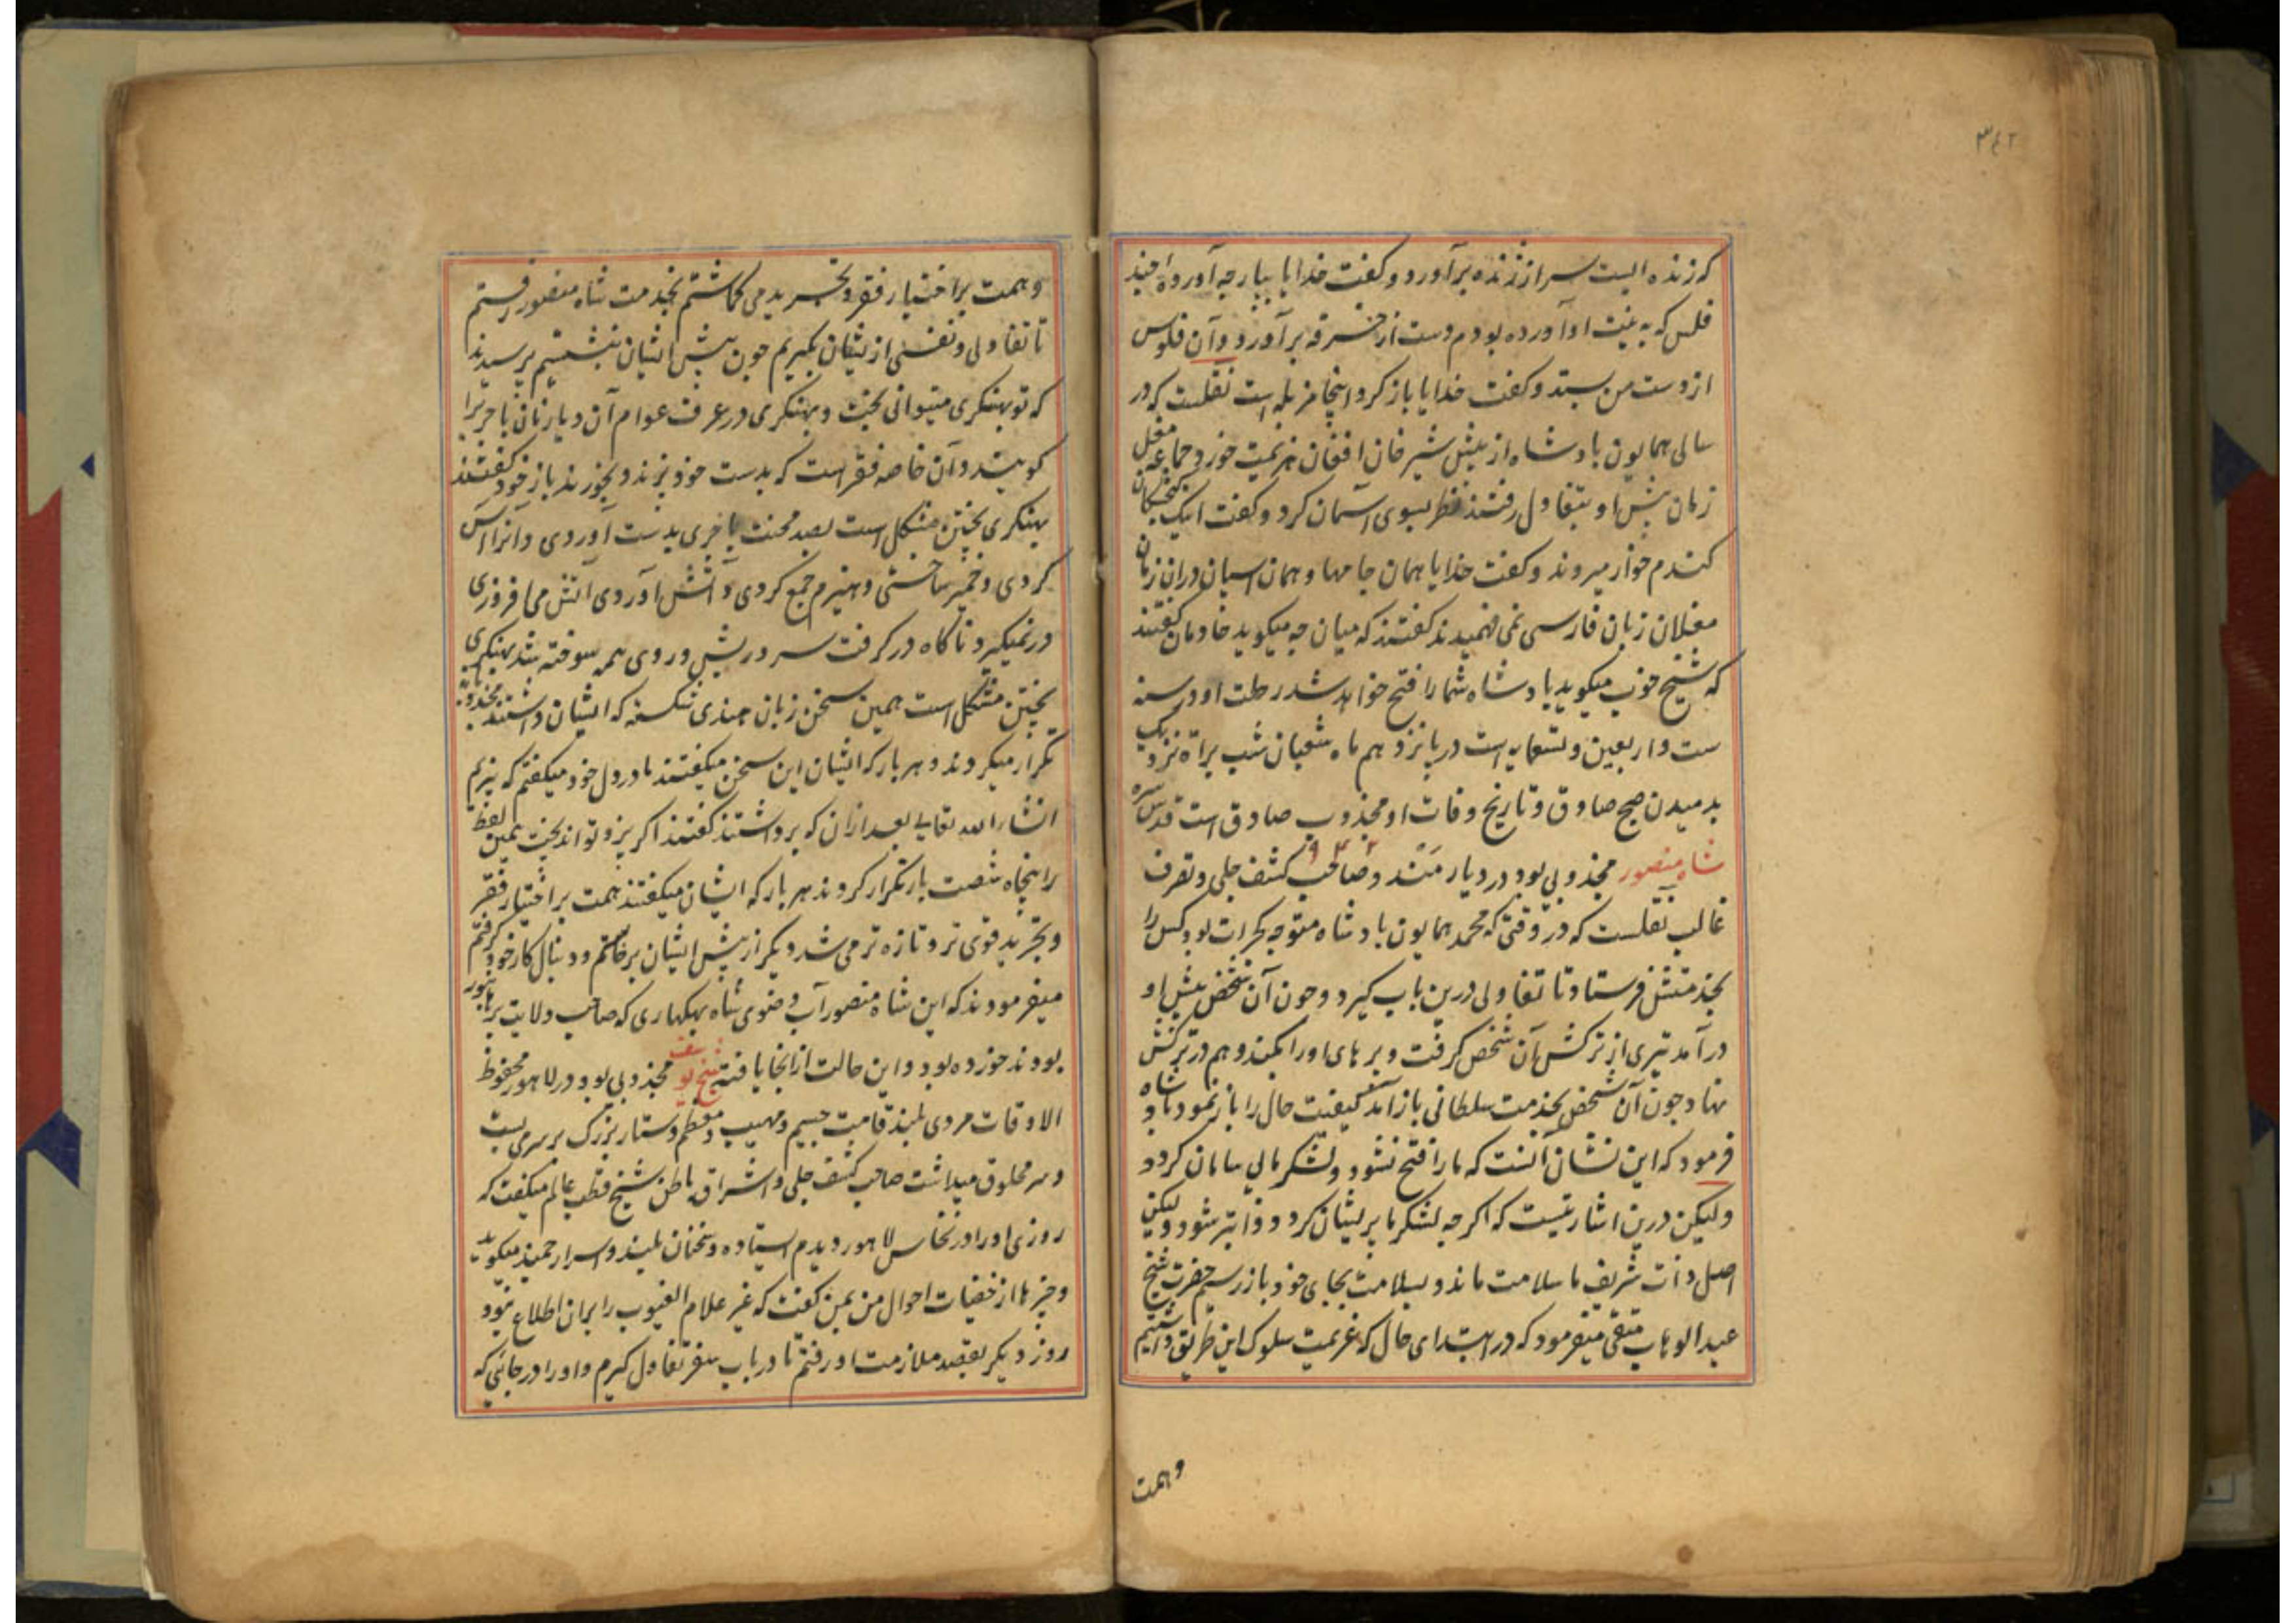 ۳۴۲
که زنده الیست سر از ژنده برآورد و گفت خدایا بیار چه آورده چند
فلس که به نیت او آورده بودم دست از خرقه برآورد و آن فلوس
از دست من ستد و گفت خدایا باز کرد اینجا مزبله است نقلست که در
سالی همایون بادشاه از پیش شیر خان افغان هزیمت خورد جماعه مغل
زمان پیش او بتفاول رفتند نظر بسوی آسمان کرد و گفت اینک
گندم خوار میروند و گفت خدایا همان جامها و همان اسپان دران زمان
مغلان زبان فارسی نمی فهمیدند گفتند که میان چه میگوید خادمان گفتند
که شیخ خوب میگوید بادشاه شما را فتح خواهد شد رحلت او در سنه
ست و اربعین و تسعمایه است در پانزدهم ماه شعبان شب براة نزدیک
بدمیدن صبح صادق و تاریخ وفات او مجذوب صادق است قدس سره
۹۴۶
شاه منصور مجذوبی بود در دیار مندو صاحب کشف جلی و تصرف
غالب نقلست که در وقتی که محمد همایون بادشاه متوجه گجرات بود کس را
بخدمتش فرستاد تا تفاولی درین باب گیرد و چون آن شخص پیش او
درآمد تیری از ترکش آن شخص گرفت و پرهای او را بکند و هم در ترکش
نهاد چون آن شخص بخدمت سلطانی باز آمد کیفیت حال را باز نمود بادشاه
فرمود که این نشان آنست که ما را فتح نشود و لشکر ما بی سامان گردد
ولیکن درین اشارتیست که اگرچه لشکر ما پریشان گردد و ابتر شود ولیکن
اصل ذات شریف ما سلامت ماند و بسلامت بجای خود باز رسیم حضرت شیخ
عبد الوهاب متقی میفرمود که در ابتدای حال که عزیمت سلوک این طریق داشتیم
وهمت
وهمت بر اختیار فقر و تجرید می گماشتم بخدمت شاه منصور رفتم
تا تفاولی و نفسی از ایشان بگیریم چون پیش ایشان بنشستیم پرسیدند
که تو بهنکری میتوانی پخت و بهنکری در عرف عوام آن دیار نان باجری را
گویند و آن خاصه فقر است که بدست خود پزند و بخورند باز خود گفتند
بهنکری پختن مشکل است بصد محنت باجری بدست آوردی و آنرا آس
کردی و خمیر ساختی و هیزم جمع کردی و آتش آوردی آتش می افروزی
در نمیگیرد ناگاه در گرفت سر و ریش و روی همه سوخته شد بهنکری
پختن مشکل است همین سخن زبان هندی شکسته که ایشان داشتند
تکرار میکردند و هر بار که ایشان این سخن میگفتند ما در دل خود میگفتم که پزیم
انشاء الله تعالی بعد ازان که برداشتند گفتند اگر پزد تواند پخت همین لفظ
را پنجاه شصت بار تکرار کردند هر بار که ایشان میگفتند همت بر اختیار فقر
و تجرید قوی تر و تازه تر می شد دیگر از پیش ایشان برخاستم و دنبال کار خود گرفتم
میفرمودند که این شاه منصور آب وضوی شاه بهیکهاری که صاحب ولایت برهانپور
بودند خورده بود و این حالت از انجا یافته شیخ یوسف مجذوبی بود در لاهور محفوظ
الاوقات مردی بلند قامت جسیم و مهیب و معظم دستار بزرگ بر سر می بست
و سر محلوق میداشت صاحب کشف جلی و اشراق باطن شیخ قطب عالم میگفت که
روزی او را در نخاس لاهور دیدم ایستاده و سخنان بلند و اسرار میگوید
و چیزها از خفیات احوال من بمن گفت که غیر علام الغیوب را بران اطلاع نبود
روز دیگر بقصد ملازمت او رفتم تا در باب سفر تفاول گیرم و او را در جائی که